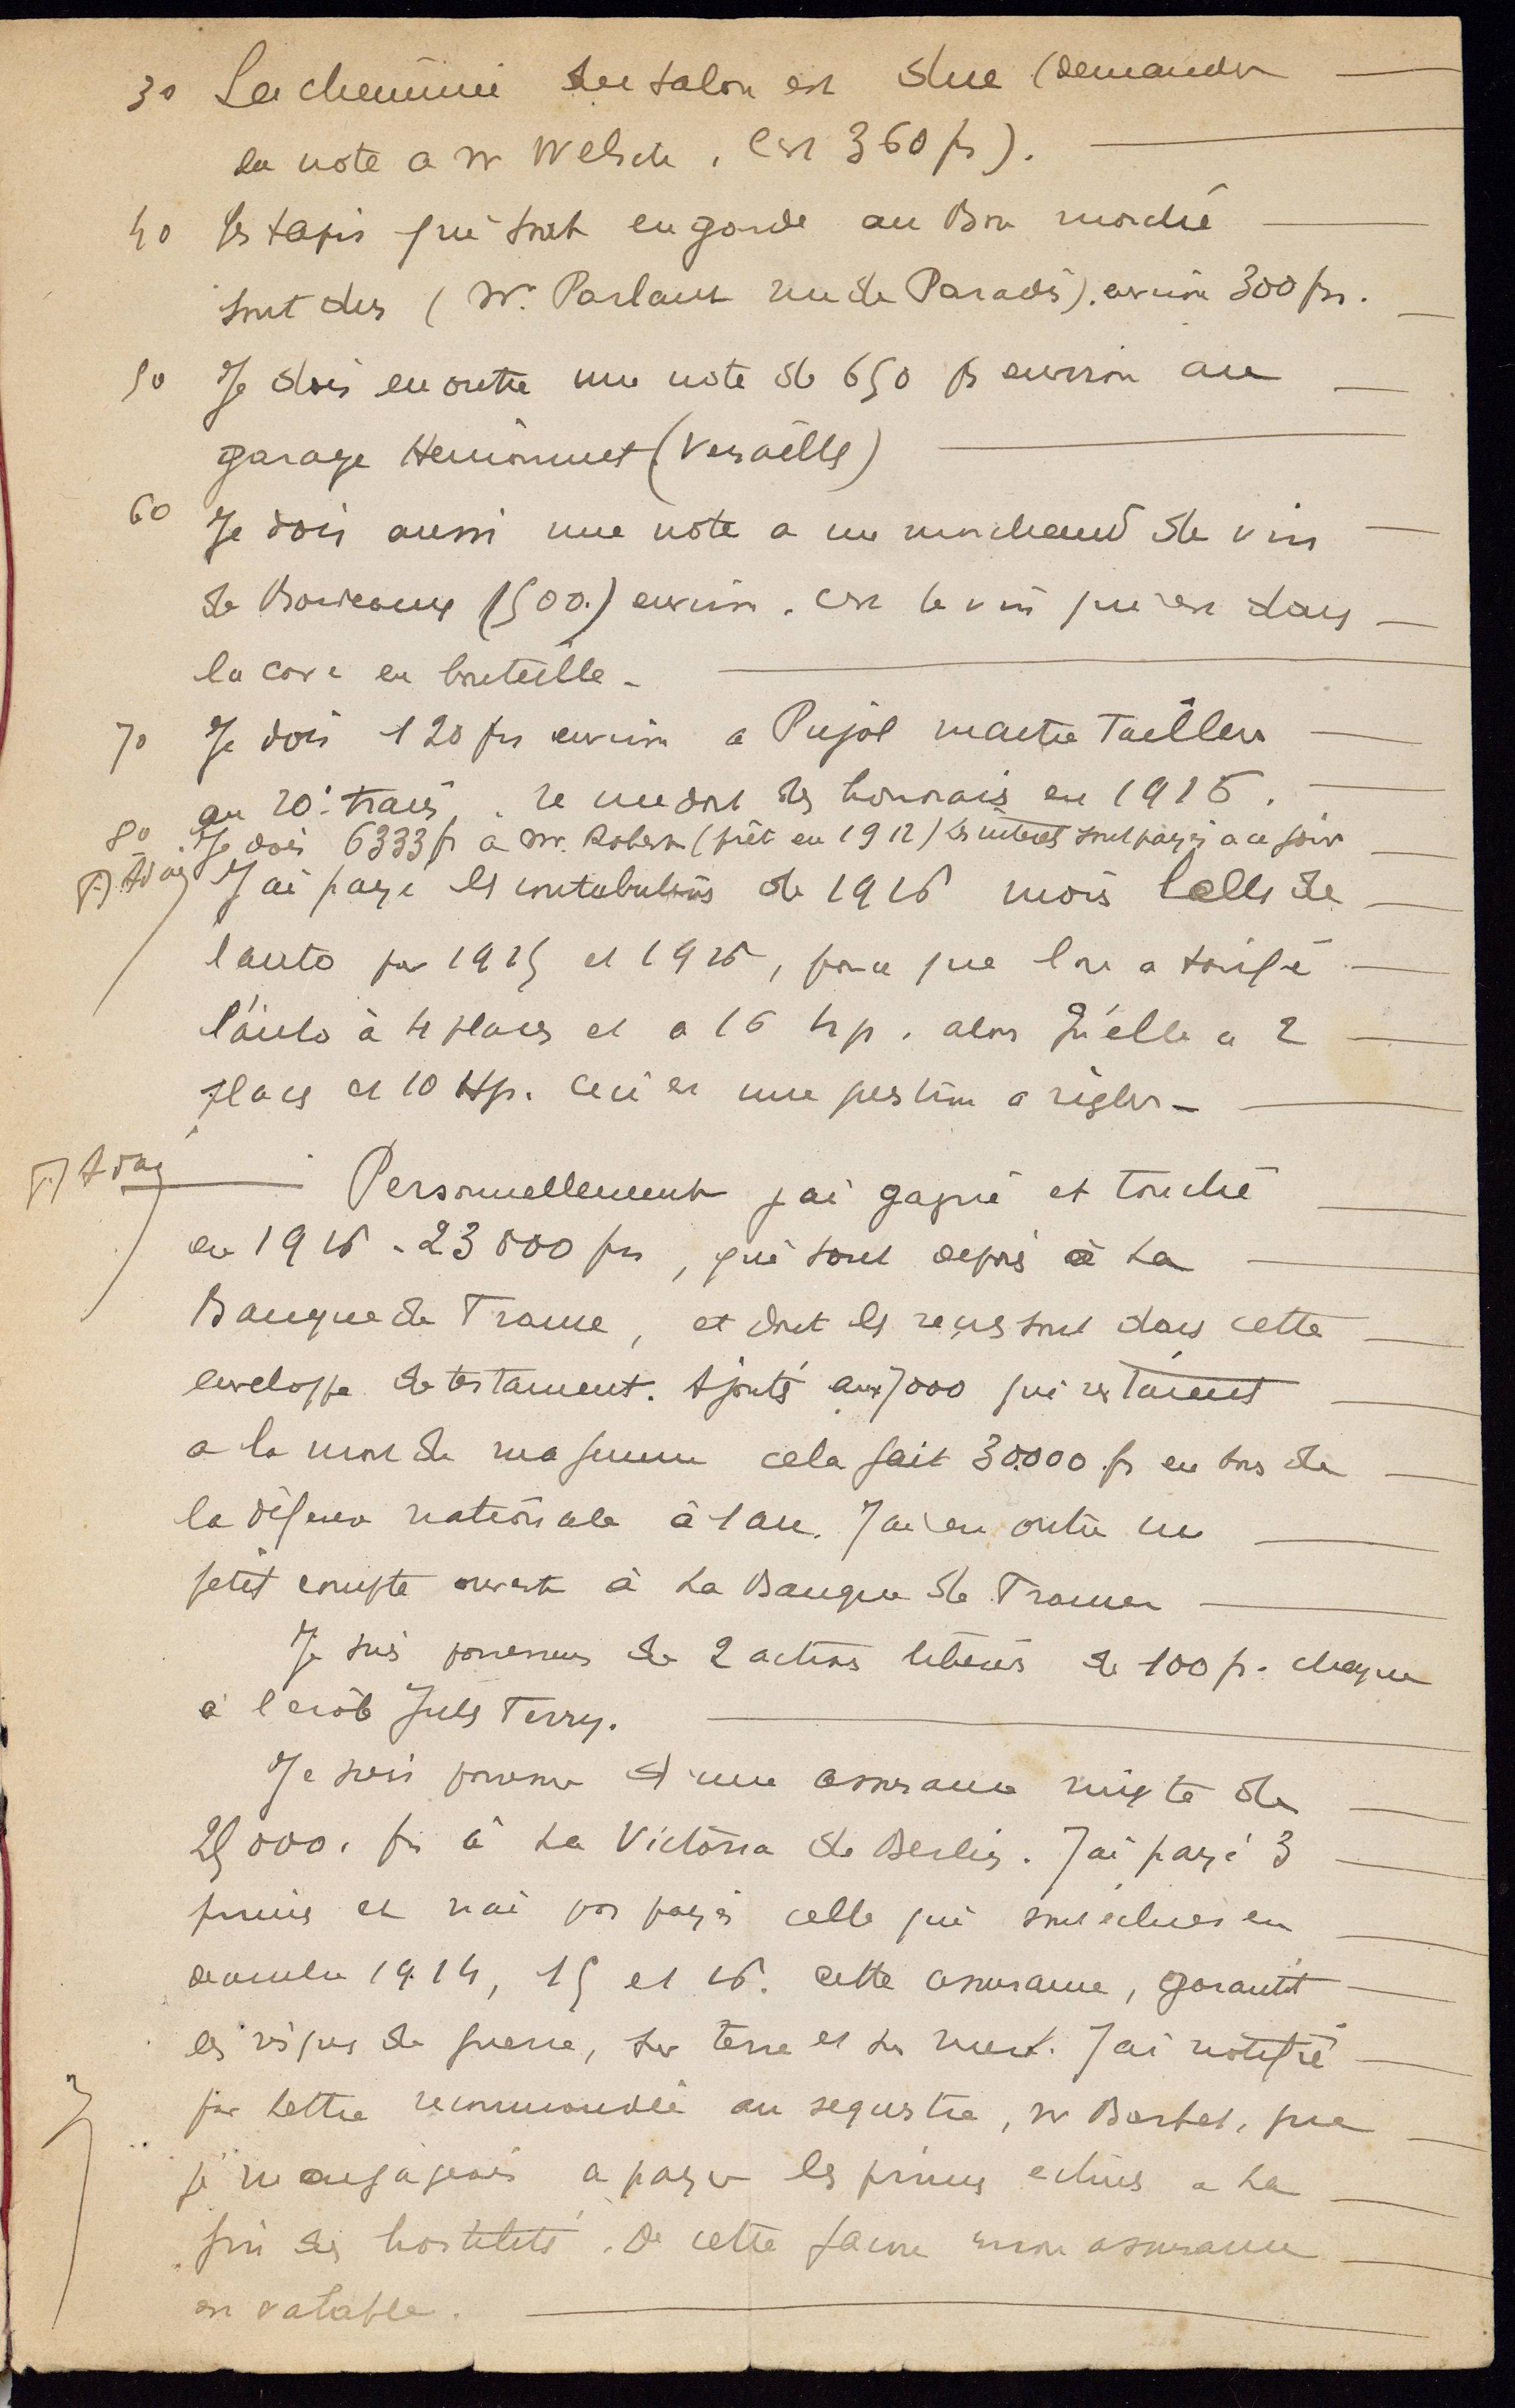 3° La cheminée du salon est due (demander
la note a Mr Welsch, c'est 360 frs).
4° Les tapis qui sont en garde au Bon marché
sont dus (Mr. Parlant rue de Paradis). environ 300 frs.
5° Je dois en outre une note de 650 frs environ au
garage Hemionnet (Versailles)
6° Je dois aussi une note a un marchand de vin
de Bordeaux (500.) environ. c'est le vin qui est dans
la cave en bouteille.
7° Je dois 120 frs environ a Pujol maitre Tailleur
au 20e train. Je me dois des honoraires en 1916.
8° Je dois 6333 fr à Mr. Robert (prêt en 1912) les intérêts sont payés a ce jour
J'ai payé les contributions de 1916 mois celles de
l'auto pr 1915 et 1916, parce que l'on a taxifié
l'auto à 4 places et a 16 hp. alors qu'elle a 2
places et 10 Hp. Ceci est une question a régler.
Personnellement j'ai gagné et touché
en 1916 . 23 000 frs, qui sont déposés à la
Banque de France, et dont les reçus sont dans cette
enveloppe de testament. Ajouté aux 7000 qui restaient
a la mort de ma femme cela fait 30.000 fr en bons de
la défense nationale à 1 an. J'ai en outre un
petit compte ouvert à la Banque de France
Je suis possesseur de 2 actions libérées de 100 fr. chaque
à l'école Jules Ferry.
Je suis possesseur d'une assurance mixte de
25 000. frs à la Victoria de Berlin. J'ai payé 3
primes et n'ai pas payés celle qui sont échues en
décembre 1914, 15 et 16. cette assurance, garantit
les risques de guerre, sur terre et sur mer. J'ai notifié
par lettre recommandée au sequestre, Mr Barbet, que
je m'engageais a payer les primes echues a la
fin des hostilités. De cette facon mon assurance
est valable.